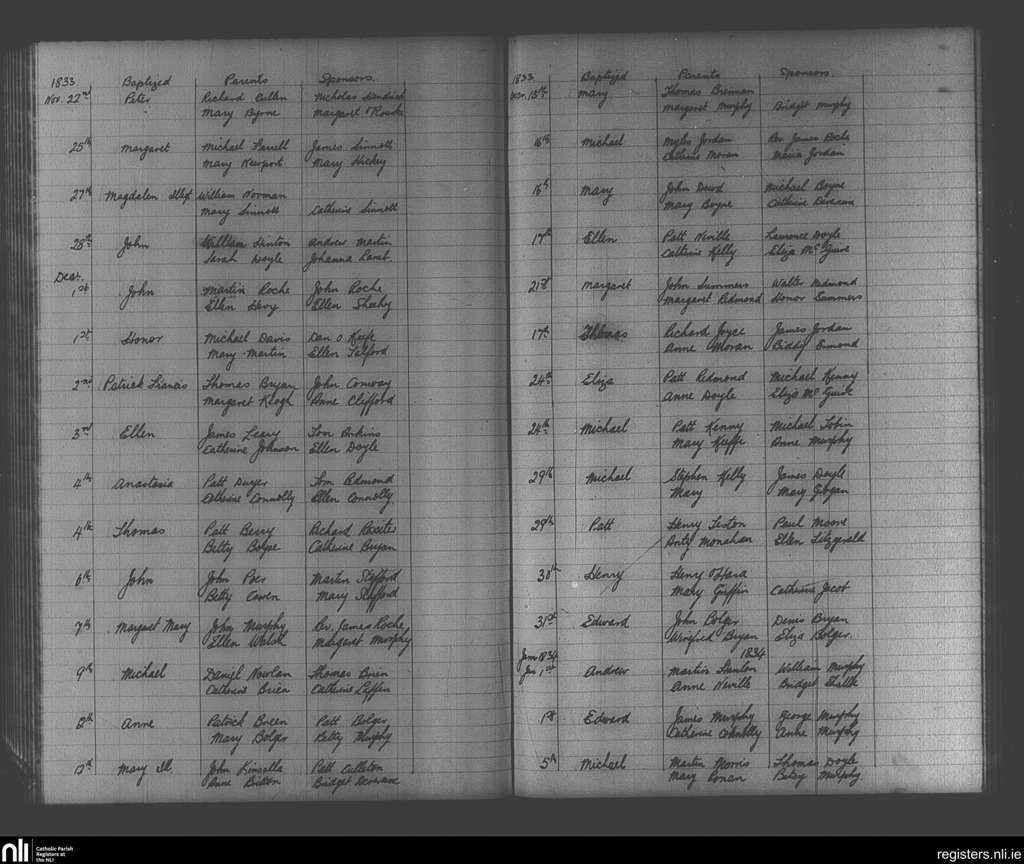 1833 Baptized Parents Sponsors
Nov. 22nd Peter Richard Cullen Nicholas
Mary Byrne Margaret Rourke
25th Margaret Michael Farrell James Sinnott
Mary Newport Mary Hickey
27th Magdalen William Norman
Mary Sinnott Catherine Sinnott
28th John William Hinton Andrew Martin
Sarah Doyle Johanna
Decr.
1st John Martin Roche John Roche
Ellen Ellen Sheehy
1st Honor Michael Davis Dan O Keefe
Mary Martin Ellen Telford
2nd Patrick Francis Thomas Bryan John Conway
Margaret Keogh Anne Clifford
3rd Ellen James Leary Tom
Catherine Johnson Ellen Doyle
4th Anastasia Patt Dwyer Tom Redmond
Catherine Connolly Ellen Connolly
4th Thomas Patt Berry Richard Rositer
Betty Bolger Catherine Bryan
6th John John Poer Martin Stafford
Betty Martin Mary Stafford
7th Margaret Mary John Murphy Rev. James Roche
Ellen Walsh Margaret Murphy
9th Michael Daniel Nowlan Thomas
Catherine Brien Catherine
12th Anne Patrick Breen Patt Bolger
Mary Bolger Betty Murphy
13th Mary John Kinsella Patt Culleton
Anne Britton Bridget
1833 Baptized Parents Sponsors
Decr. 15th Mary Thomas Brennan
Margaret Murphy Bridget Murphy
16th Michael Myles Jordan Rev James Roche
Catherine Moran Maria Jordan
16th Mary John Michael Boyne
Mary Boyne Catherine
17th Ellen Patt Neville Laurence Doyle
Catherine Kelly Eliza McGuire
21st Margaret John Summers Walter Redmond
Margaret Redmond Honor Summers
17th Thomas Richard Joyce James Jordan
Anne Moran Biddy
24th Eliza Patt Redmond Michael Kenny
Anne Doyle Eliza McGuire
24th Michael Patt Kenny Michael Tobin
Mary Keeffe Anne Murphy
29th Michael Stephen Kelly James Doyle
Mary Mary Gogan
29th Patt Henry Paul Moore
Anty Monahan Ellen Fitzgerald
30th Henry Henry O'Hara
Mary Griffin Catherine
31st Edward John Bolger Denis Bryan
Winifred Bryan Eliza Bolger.
Jan 1834 1834
Jan 1st Andrew Martin Hanlon William Murphy
Anne Neville Bridget
1st Edward James Murphy George Murphy
Catherine Connolly Anne Murphy
5th Michael Martin Morris Thomas Doyle
Mary Ronan Betsy Murphy
nli Catholic Parish
Registers at
the NLI
registers.nli.ie